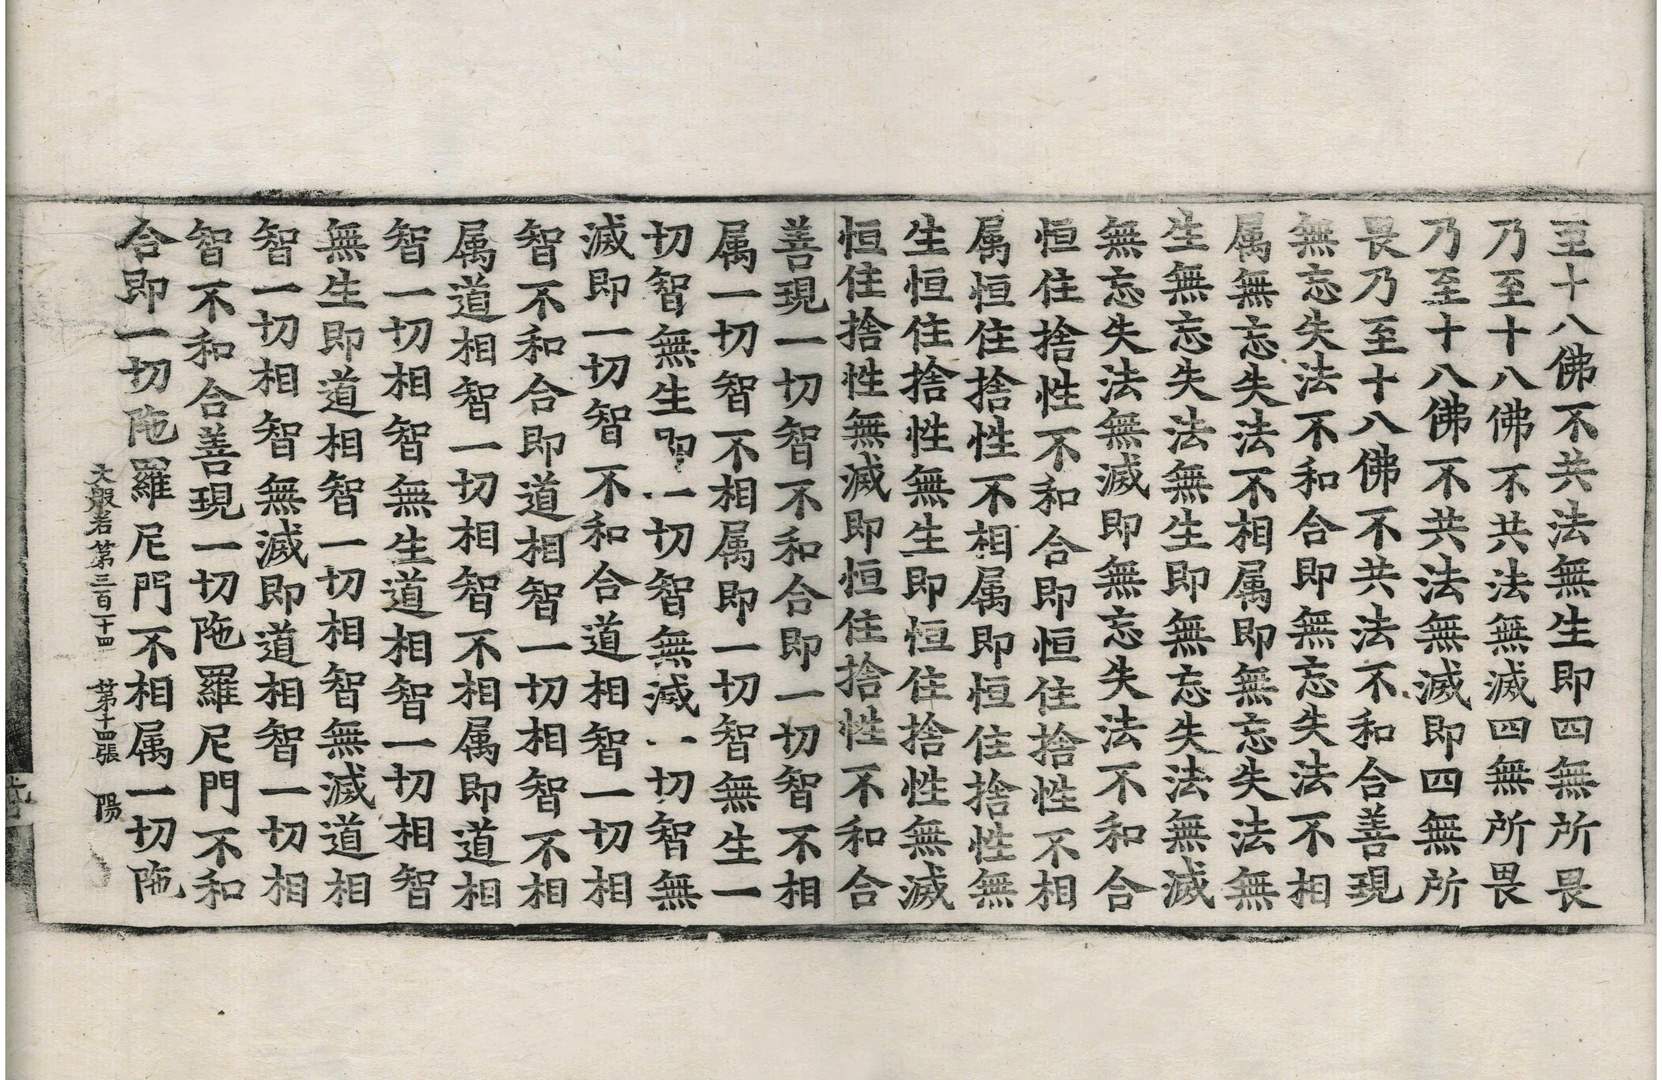 至十八佛不共法無生即四無所畏
乃至十八佛不共法無滅四無所畏
乃至十八佛不共法無滅即四無所
畏乃至十八佛不共法不和合善現
無忘失法不和合即無忘失法不相
属無忘失法不相属即無忘失法無
生無忘失法無生即無忘失法無滅
無忘失法無滅即無忘失法不和合
恒住捨性不和合即恒住捨性不相
属恒住捨性不相属即恒住捨性無
生恒住捨性無生即恒住捨性無滅
恒住捨性無滅即恒住捨性不和合
善現一切智不和合即一切智不相
属一切智不相属即一切智無生一
切智無生即一切智無滅一切智無
滅即一切智不和合道相智一切相
智不和合即道相智一切相智不相
属道相智一切相智不相属即道相
智一切相智無生道相智一切相智
無生即道相智一切相智無滅道相
智一切相智無滅即道相智一切相
智不和合善現一切陁羅尼門不和
合即一切陁羅尼門不相属一切陁
大般若第三百一十四 第十四張 陽